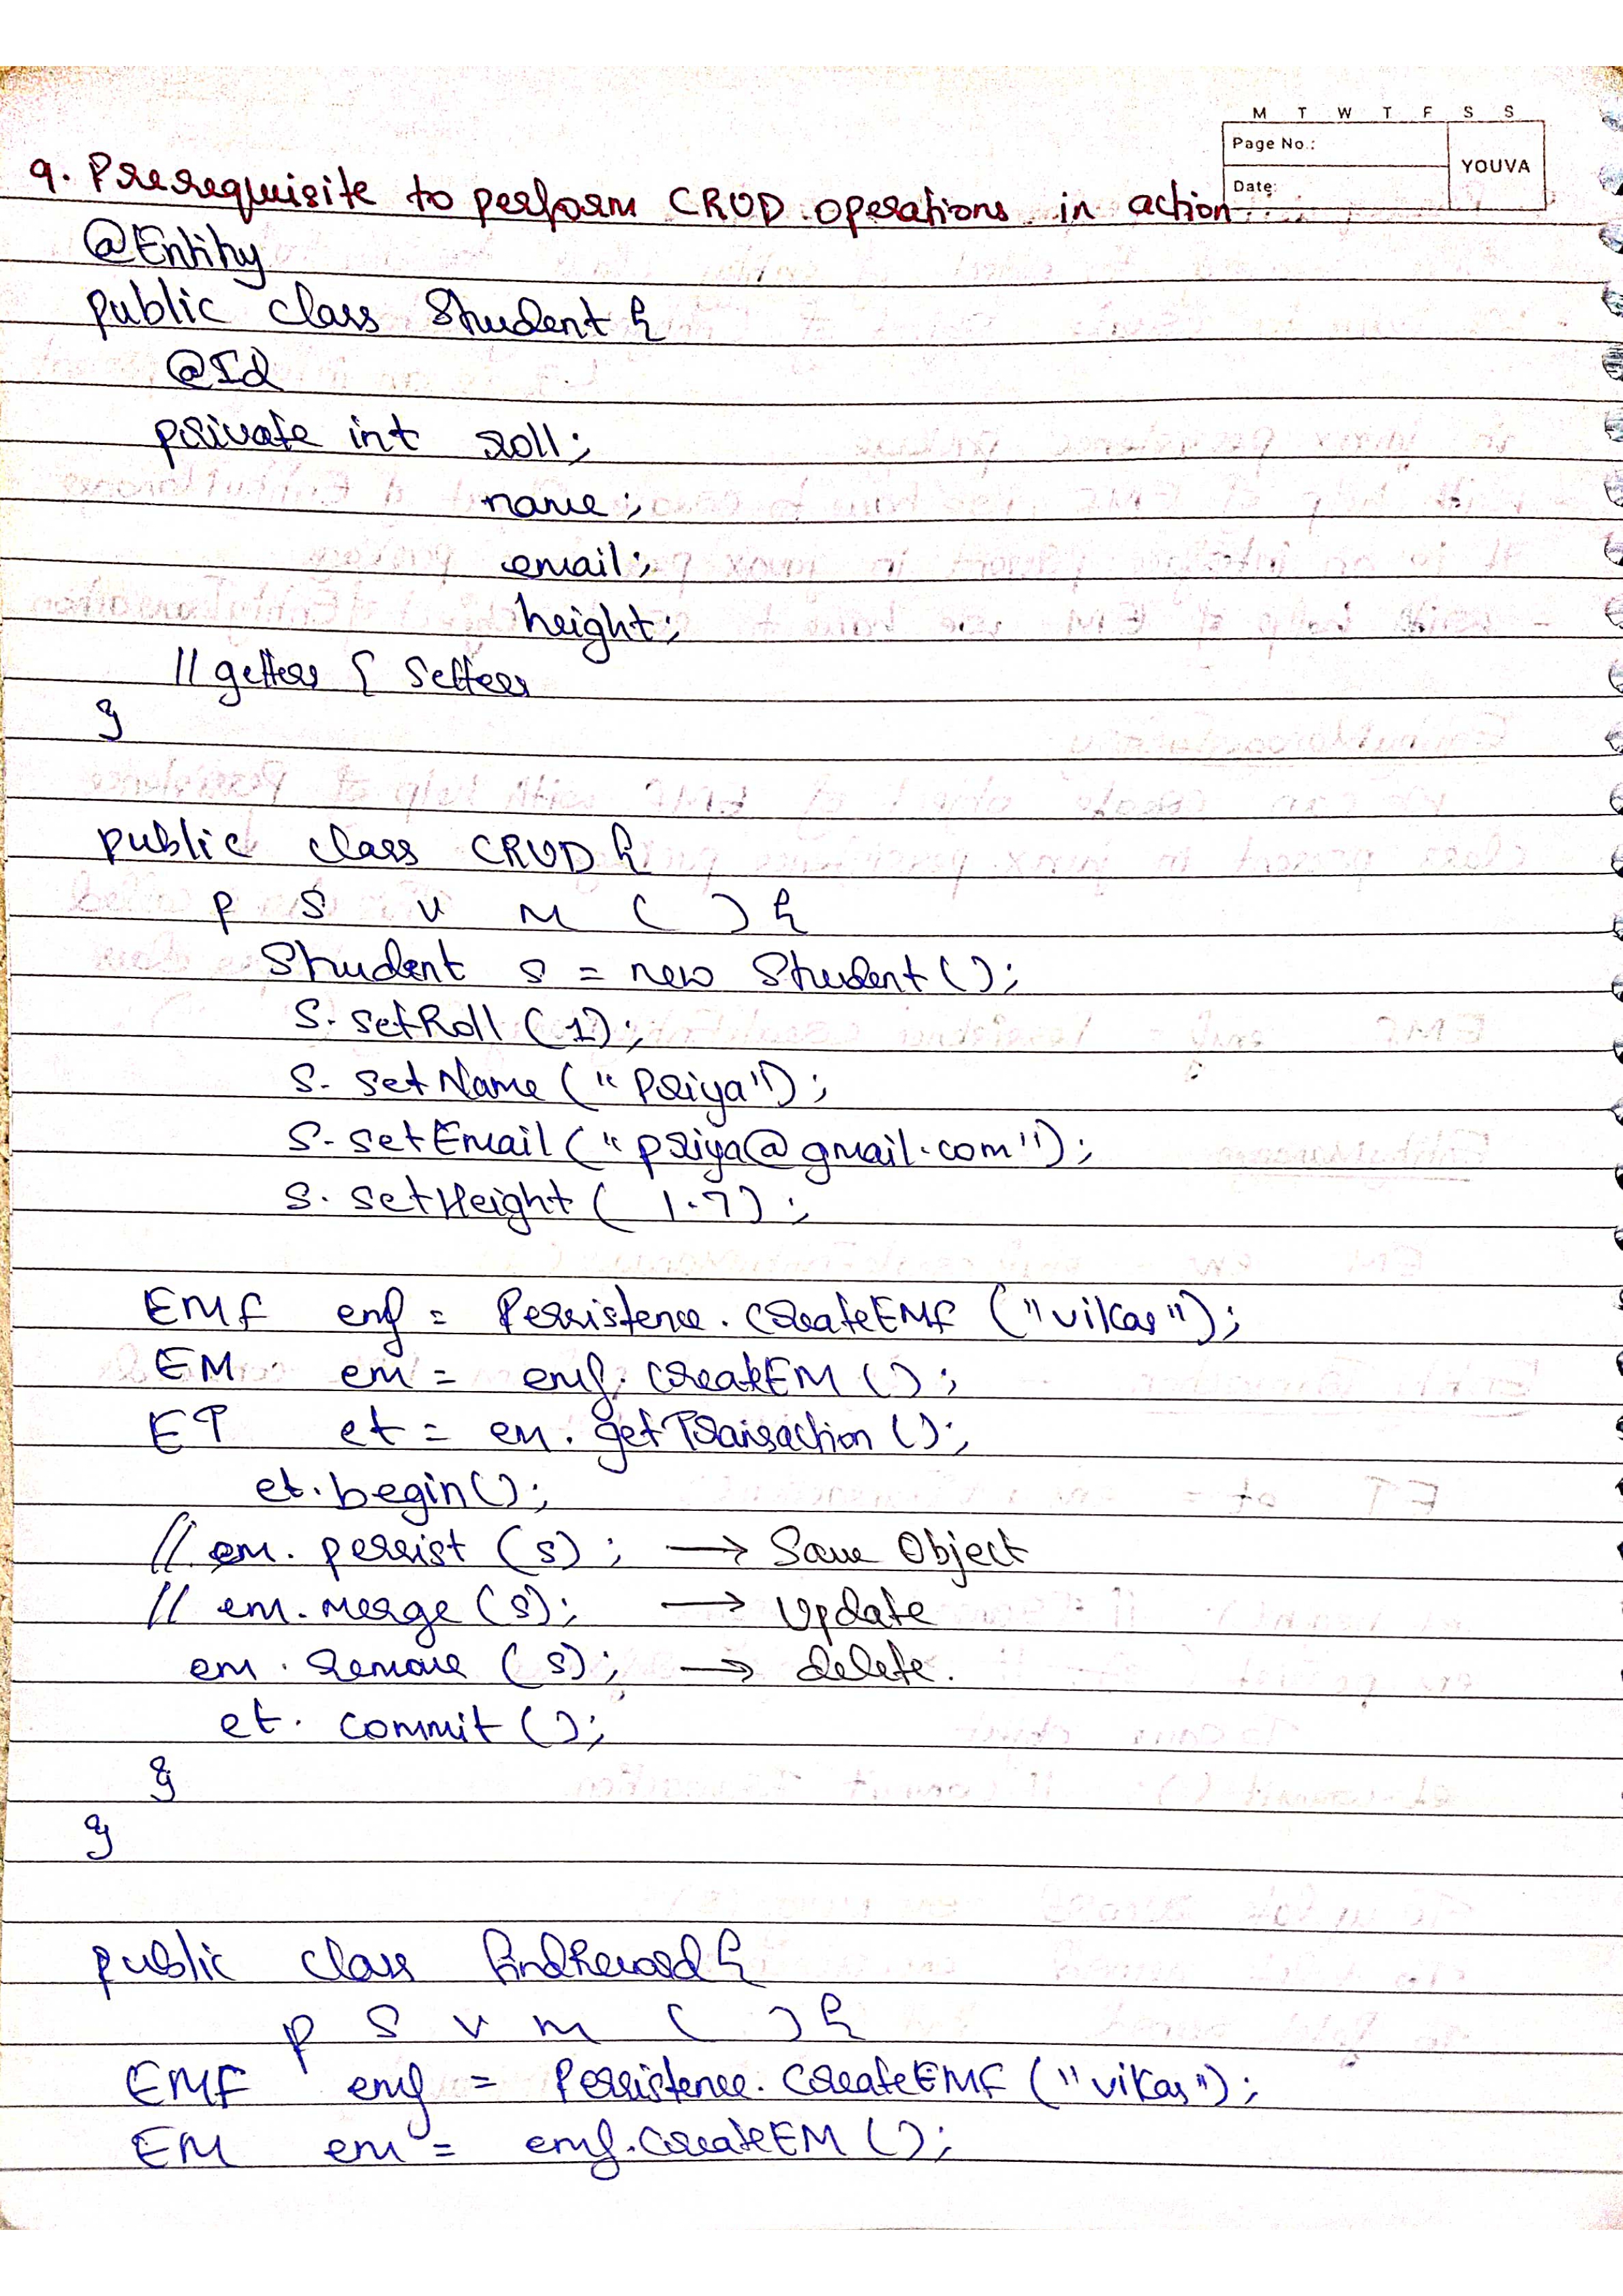 M T W T F S S
Page No.:
YOUVA
Date:
9. Prerequisite to perform CRUD operations in action
@Entity
public class Student {
@Id
private int roll;
name;
email;
height;
// getters & setters
}
public class CRUD {
p s v m ( ) {
Student s = new Student();
s.setRoll (1);
s.setName ("Priya");
s.setEmail ("priya@gmail.com");
s.setHeight ( 1.7);
EMF emf = Persistence.createEMF ("vikas");
EM em = emf.createEM ();
ET et = em.getTransaction ();
et.begin();
// em.persist (s); → Save Object
// em.merge (s); → Update
em.remove (s); → delete.
et.commit ();
}
}
public class findRecord {
p s v m ( ) {
EMF emf = Persistence.createEMF ("vikas");
EM em = emf.createEM ();